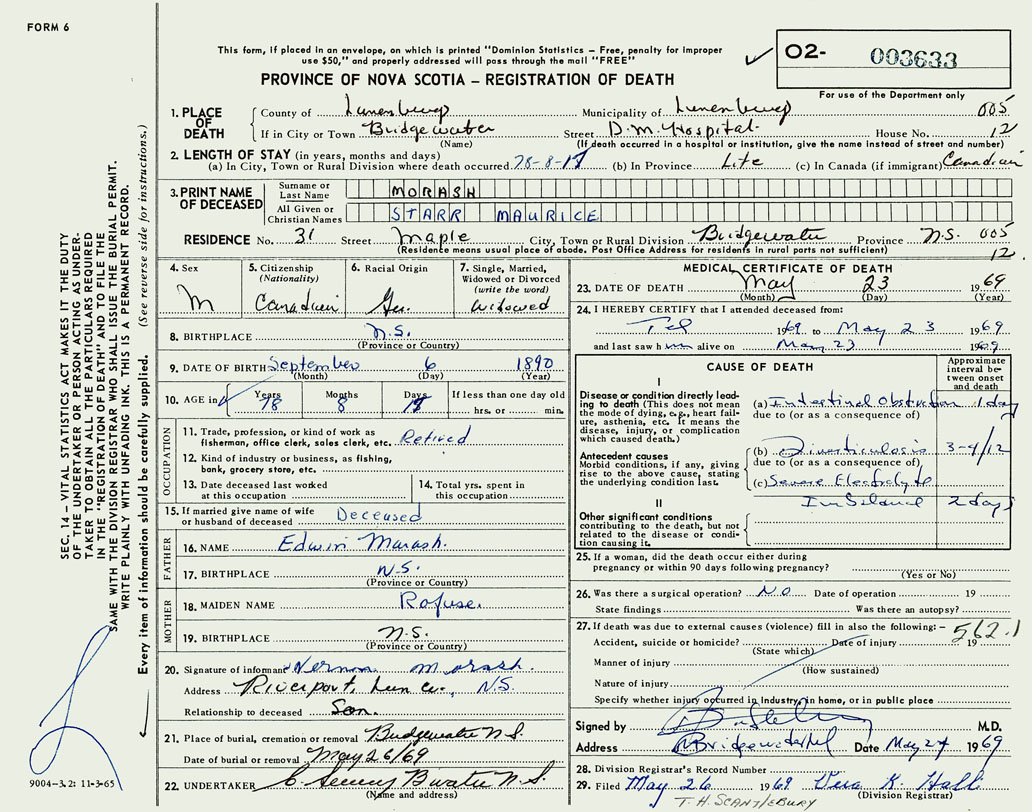 FORM 6
This form, if placed in an envelope, on which is printed "Dominion Statistics – Free, penalty for improper
use $50," and properly addressed will pass through the mail "FREE"
PROVINCE OF NOVA SCOTIA – REGISTRATION OF DEATH
O2- 003633
For use of the Department only
1. PLACE OF DEATH
County of Lunenburg Municipality of Lunenburg 005
If in City or Town Bridgewater Street D.M. Hospital House No. 12
(Name) (If death occurred in a hospital or institution, give the name instead of street and number)
2. LENGTH OF STAY (in years, months and days)
(a) In City, Town or Rural Division where death occurred 78-8-17 (b) In Province Life (c) In Canada (if immigrant) Canadian
3. PRINT NAME OF DECEASED
Surname or Last Name MORASH
All Given or Christian Names STARR MAURICE
RESIDENCE No. 31 Street Maple City, Town or Rural Division Bridgewater Province N.S. 005
(Residence means usual place of abode. Post Office Address for residents in rural parts not sufficient) 12.
4. Sex
M
5. Citizenship
(Nationality)
Canadian
6. Racial Origin
Ger.
7. Single, Married,
Widowed or Divorced
(write the word)
Widowed
8. BIRTHPLACE N.S.
(Province or Country)
9. DATE OF BIRTH September 6 1890
(Month) (Day) (Year)
10. AGE in Years Months Days If less than one day old
78 8 17 hrs. or min.
OCCUPATION
11. Trade, profession, or kind of work as
fisherman, office clerk, sales clerk, etc. Retired
12. Kind of industry or business, as fishing,
bank, grocery store, etc.
13. Date deceased last worked
at this occupation
14. Total yrs. spent in
this occupation
15. If married give name of wife
or husband of deceased Deceased
FATHER
16. NAME Edwin Morash.
17. BIRTHPLACE N.S.
(Province or Country)
MOTHER
18. MAIDEN NAME Rafuse.
19. BIRTHPLACE N.S.
(Province or Country)
20. Signature of informant Vernon Morash.
Address Riverport, Lun Co., N.S.
Relationship to deceased Son.
21. Place of burial, cremation or removal Bridgewater N.S.
Date of burial or removal May 26/69
22. UNDERTAKER N.S.
(Name and address)
MEDICAL CERTIFICATE OF DEATH
23. DATE OF DEATH May 23 1969
(Month) (Day) (Year)
24. I HEREBY CERTIFY that I attended deceased from:
1969 to May 23 1969
and last saw him alive on May 23 1969
CAUSE OF DEATH
Approximate
interval be-
tween onset
and death
I
Disease or condition directly lead-
ing to death (This does not mean
the mode of dying, e.g., heart fail-
ure, asthenia, etc. It means the
disease, injury, or complication
which caused death.)
(a) Intestinal Obstruction 1 day
due to (or as a consequence of)
Antecedent causes
Morbid conditions, if any, giving
rise to the above cause, stating
the underlying condition last.
(b) Diverticulosis 3-4/12
due to (or as a consequence of)
(c) Severe Electrolyte
II
Imbalance 2 days
Other significant conditions
contributing to the death, but not
related to the disease or condi-
tion causing it.
25. If a woman, did the death occur either during
pregnancy or within 90 days following pregnancy?
(Yes or No)
26. Was there a surgical operation? No Date of operation 19
State findings Was there an autopsy?
27. If death was due to external causes (violence) fill in also the following: – 562.1
Accident, suicide or homicide? Date of injury 19
(State which)
Manner of injury
(How sustained)
Nature of injury
Specify whether injury occurred in industry, in home, or in public place
Signed by M.D.
Address Date May 24 1969
28. Division Registrar's Record Number
29. Filed May 26 1969 Vera K. Hall
(Division Registrar)
T. H. SCANTLEBURY
SEC. 14 – VITAL STATISTICS ACT MAKES IT THE DUTY
OF THE UNDERTAKER OR PERSON ACTING AS UNDER-
TAKER TO OBTAIN ALL THE PARTICULARS REQUIRED
IN THE "REGISTRATION OF DEATH" AND TO FILE THE
SAME WITH THE DIVISION REGISTRAR WHO SHALL ISSUE THE BURIAL PERMIT.
WRITE PLAINLY WITH UNFADING INK. THIS IS A PERMANENT RECORD.
Every item of information should be carefully supplied. (See reverse side for instructions.)
9004–3.2: 11-3-65